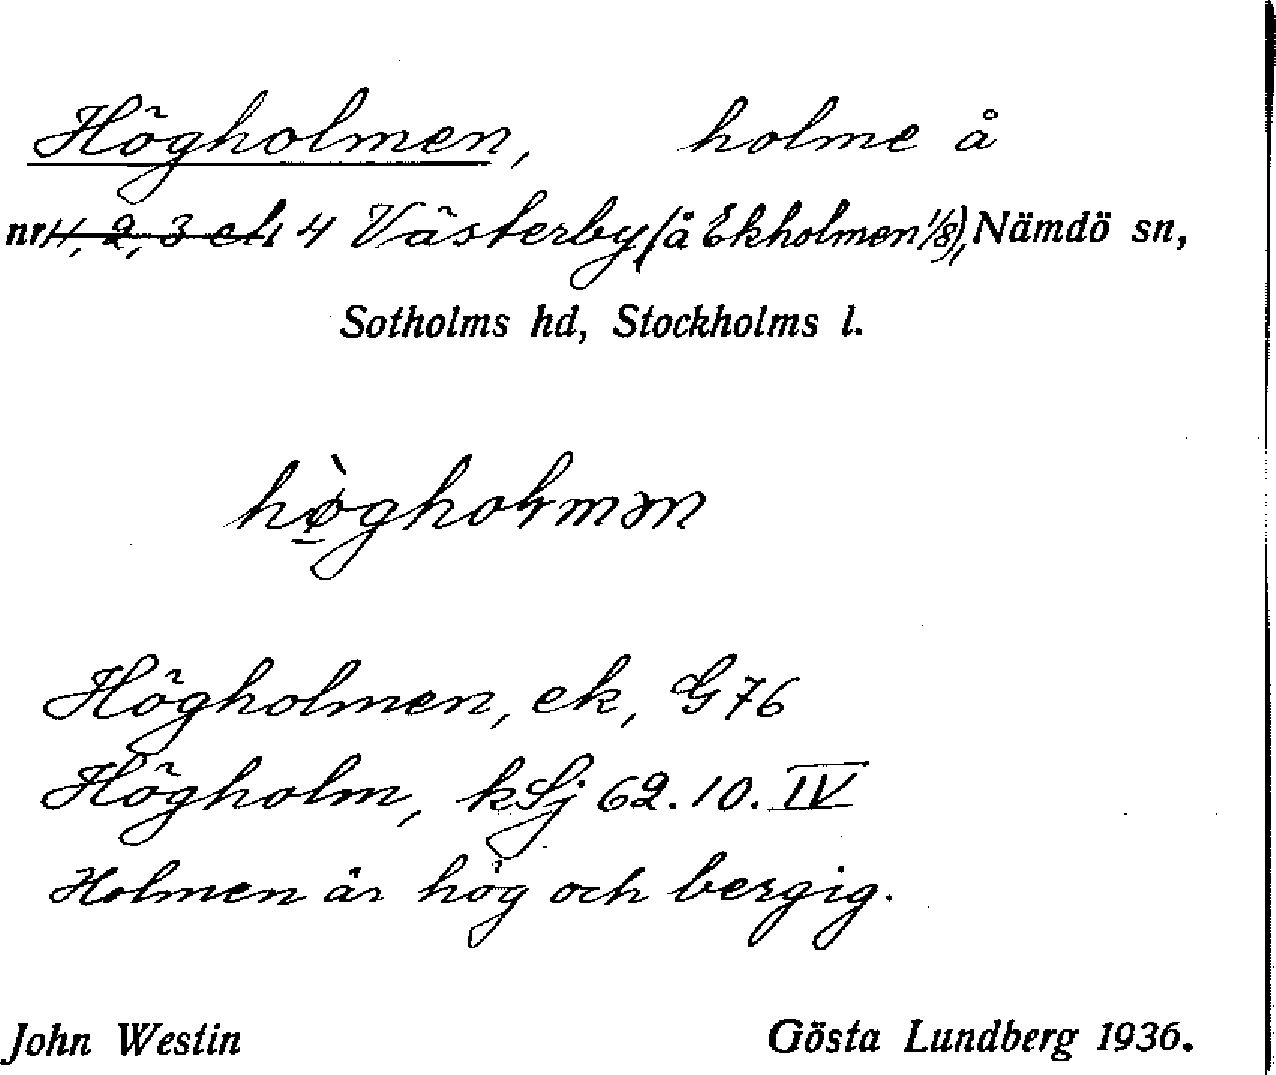 Högholmen, holme å
nr 1, 2, 3 ch 4 Västerby (å Ekholmen 1/8), Nämdö sn,
Sotholms hd, Stockholms l.
Högholmen, ek, G 76
Högholm, kSj 62.10.IV
Holmen är hög och bergig.
John Westin Gösta Lundberg 1936.